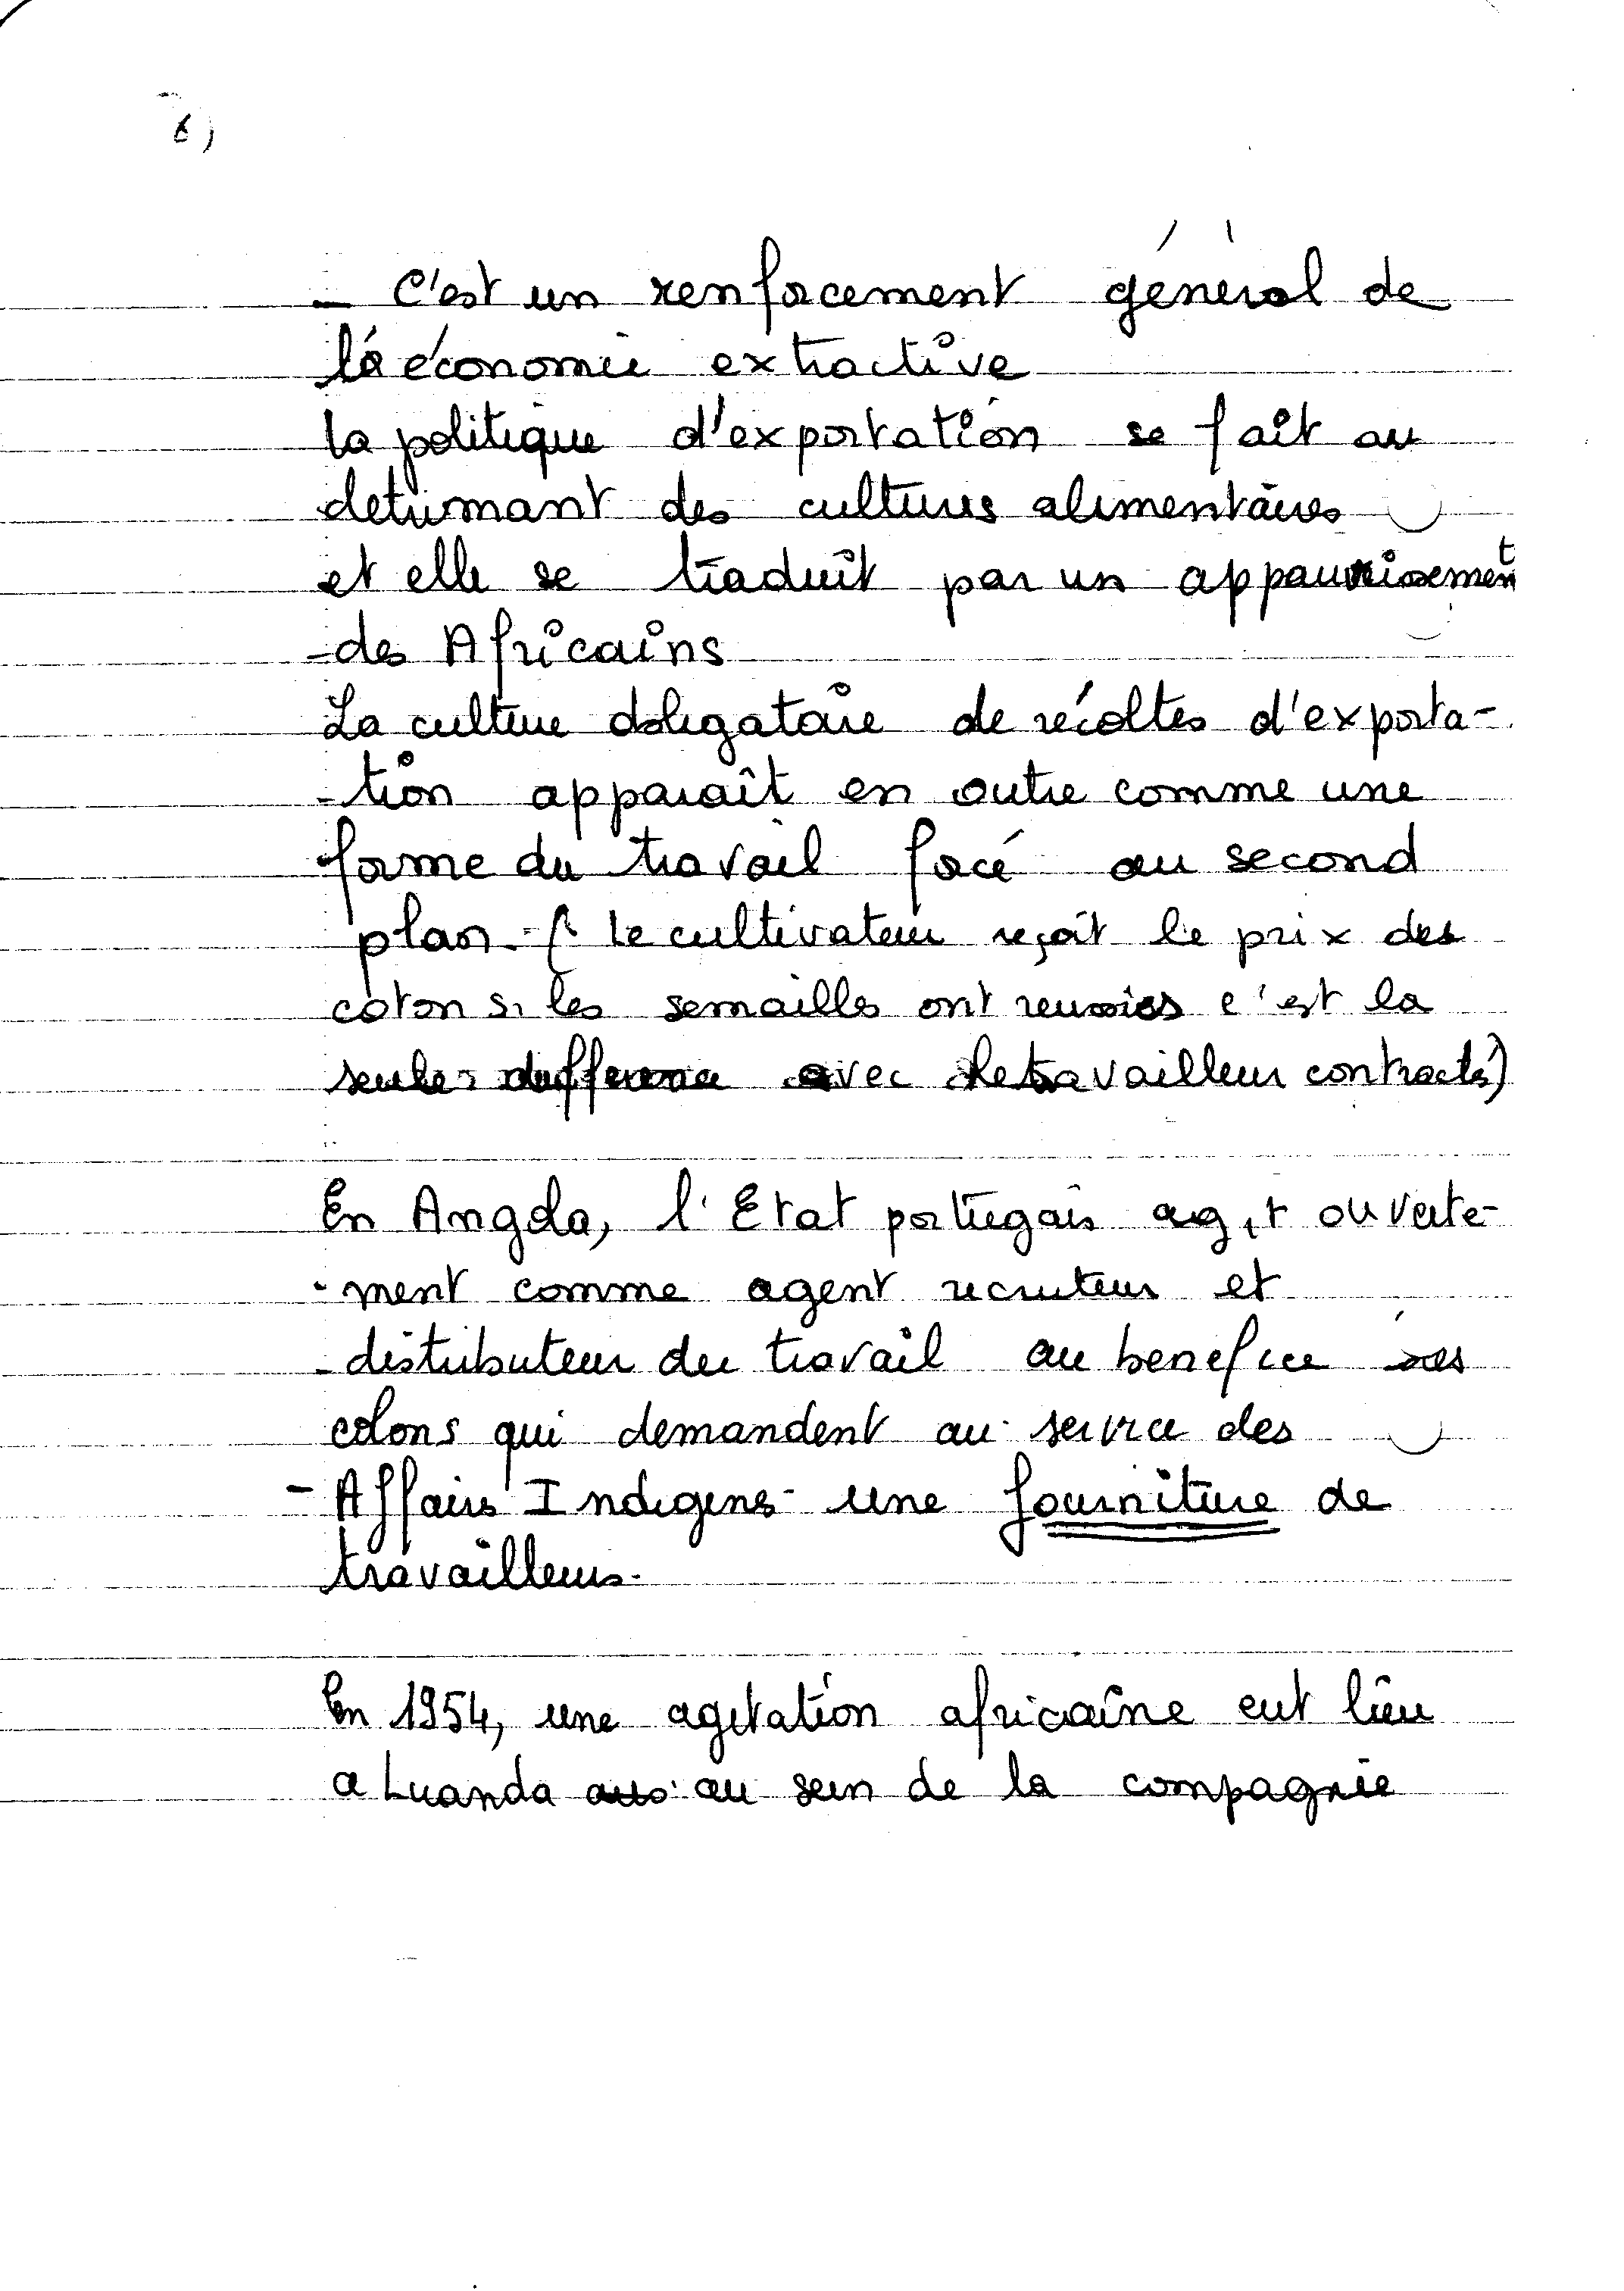 6)
- C'est un renforcement général de
la économie extractive
la politique d'exportation se fait au
detrimant des cultures alimentaires
et elle se traduit par un appauvrissement
des Africains
La culture obligatoire de récoltes d'exporta-
-tion apparaît en outre comme une
forme du travail forcé au second
plan. ( le cultivateur reçoit le prix des
coton si les semailles ont reussies c'est la
seule difference avec le travailleur contracts)
En Angola, l'Etat portugais agit ouverte-
-ment comme agent recruteur et
distributeur du travail au benefice des
colons qui demandent au service des
- Affairs Indigens une fourniture de
travailleurs.
En 1954, une agitation africaine eut lieu
a Luanda au sein de la compagnie